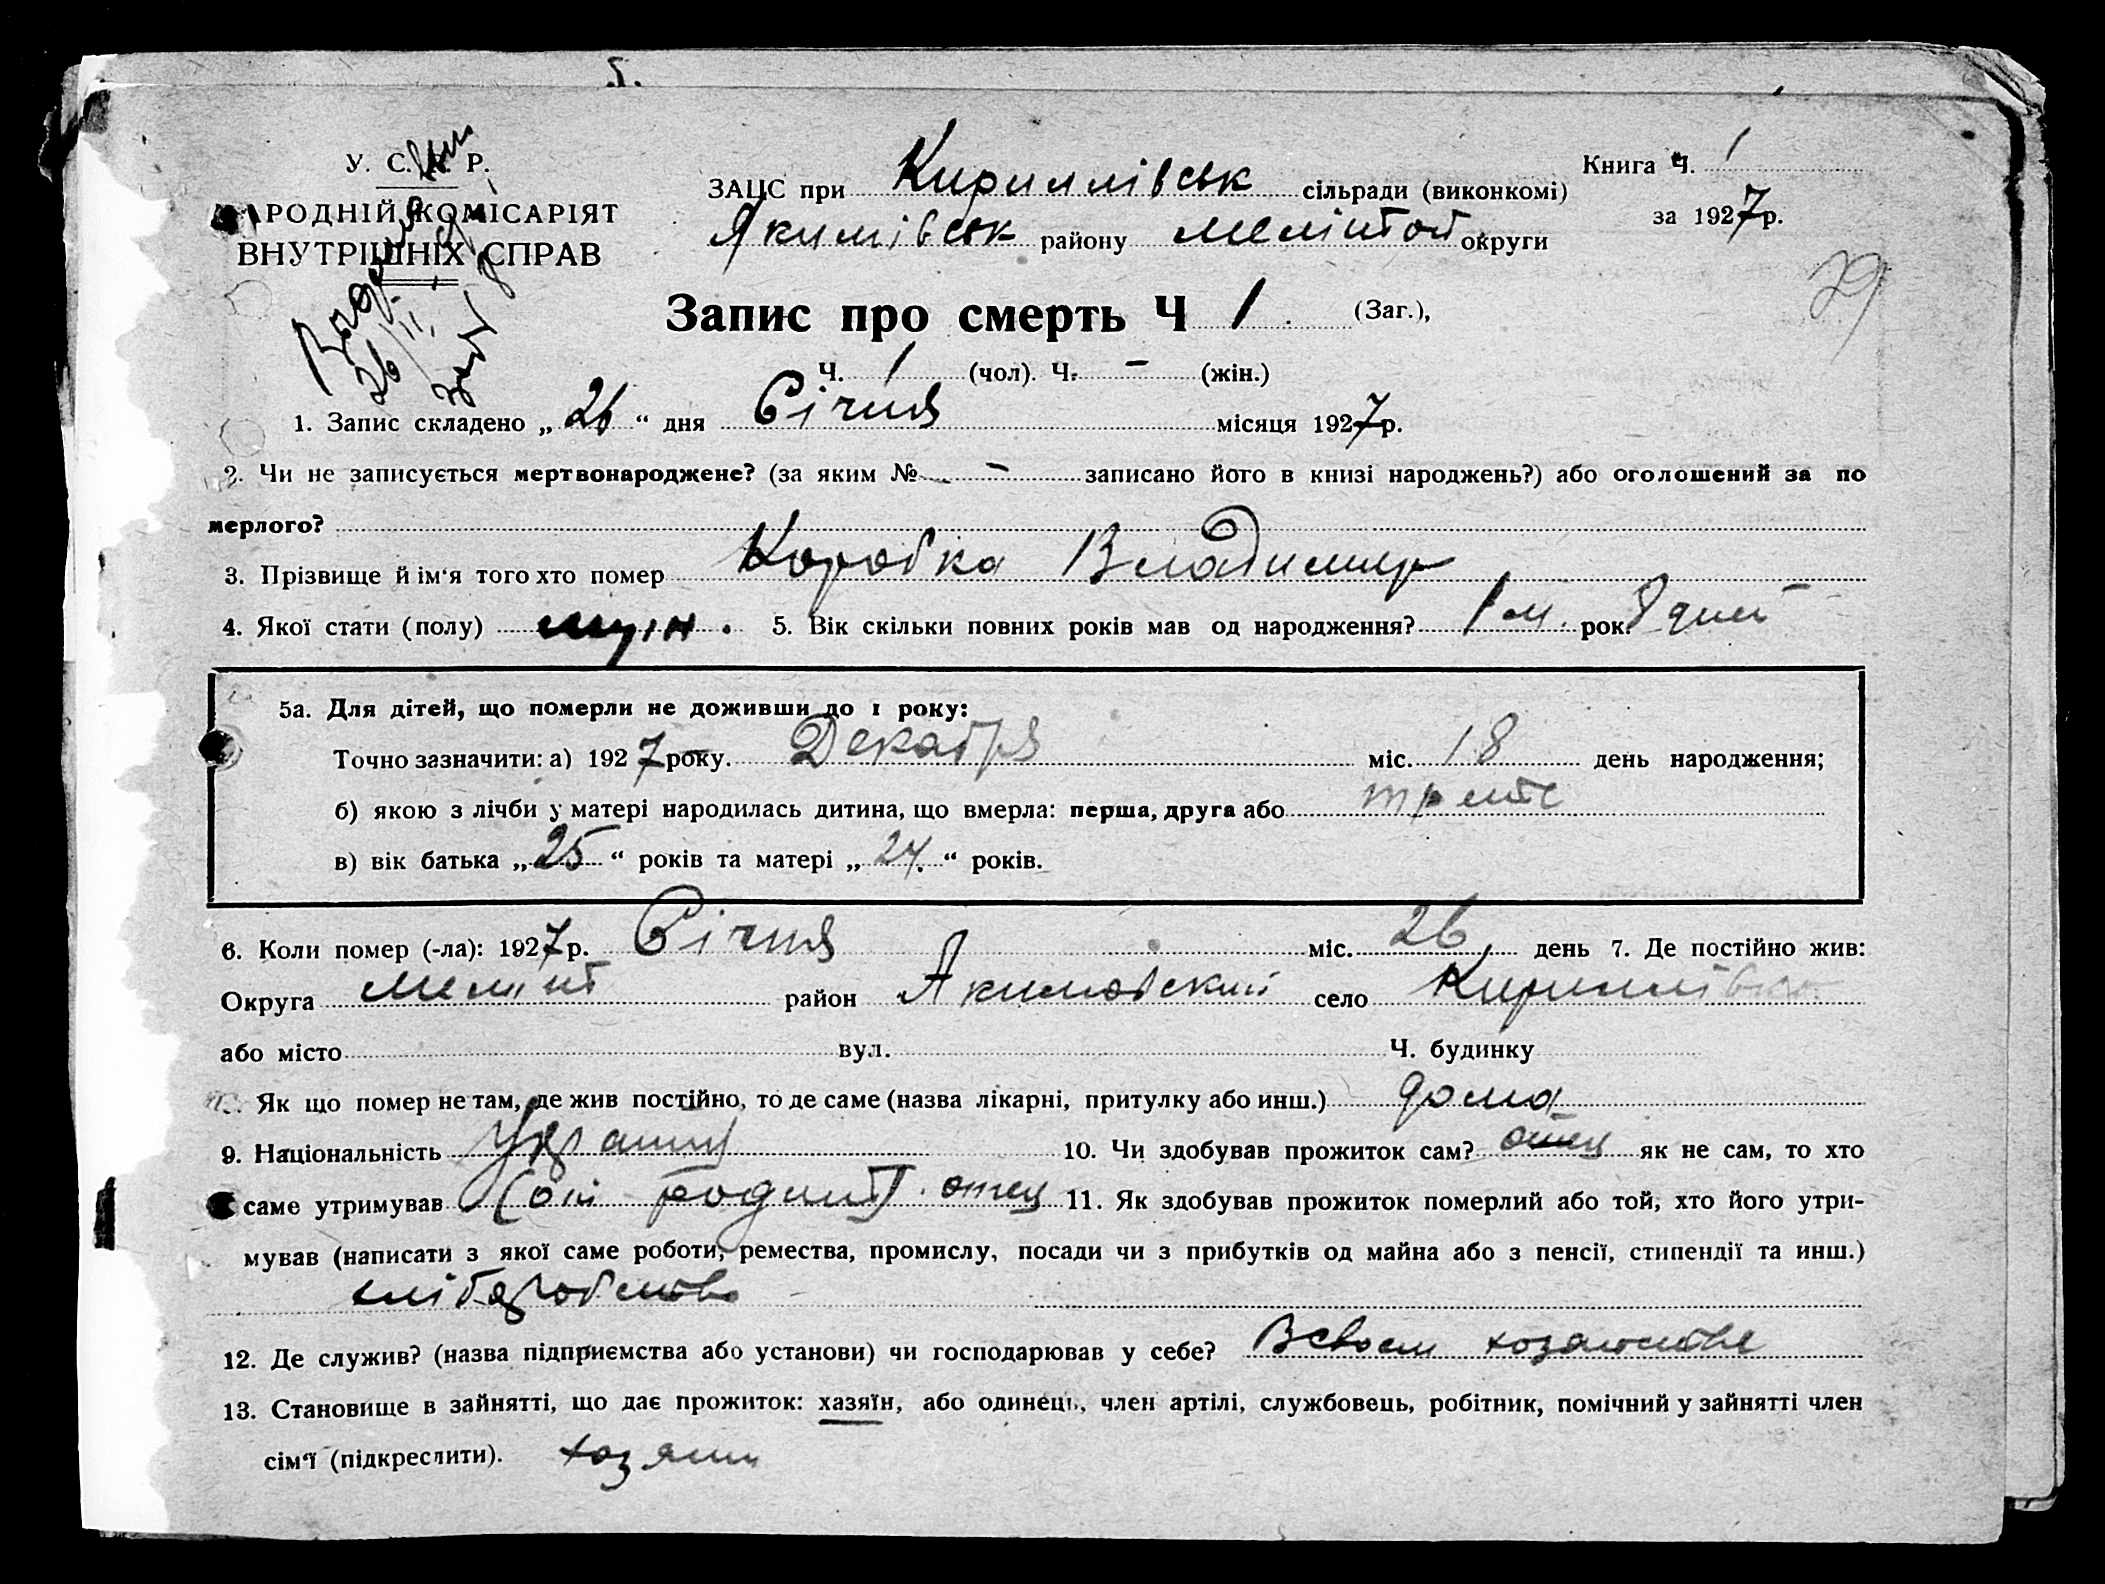 5.
У. С. Р. Р.
НАРОДНІЙ КОМІСАРІЯТ
ВНУТРІШНІХ СПРАВ
26/II
ЗАЦС при Кириллівськ сільради (виконкомі)
Якимівськ району Мелітоп округи
Книга Ч. 1
за 1927 р.
29
Запис про смерть Ч 1 (Заг.),
Ч. 1 (чол). Ч. – (жін.)
1. Запис складено „ 26 “ дня Січня місяця 1927 р.
2. Чи не записується мертвонароджене? (за яким № – записано його в книзі народжень?) або оголошений за по
мерлого?
3. Прізвище й ім‘я того хто помер Коробка Владимир
4. Якої стати (полу) муж. 5. Вік скільки повних років мав од народження? 1 м. рок. 8 дней
5а. Для дітей, що померли не доживши до 1 року:
Точно зазначити: а) 1927 року. Декабря міс. 18 день народження;
б) якою з лічби у матері народилась дитина, що вмерла: перша, друга або
в) вік батька „ 25 “ років та матері „ 24. “ років.
6. Коли помер (-ла): 1927 р. Січня міс. 26 день 7. Де постійно жив:
Округа Меліт район Акимовский село Кириллівка
або місто вул. Ч. будинку
Як що помер не там, де жив постійно, то де саме (назва лікарні, притулку або инш.) дома
9. Національність 10. Чи здобував прожиток сам? отец як не сам, то хто
саме утримував отец 11. Як здобував прожиток померлий або той, хто його утри-
мував (написати з якої саме роботи, ремества, промислу, посади чи з прибутків од майна або з пенсії, стипендії та инш.)
хлібаробство
12. Де служив? (назва підприємства або установи) чи господарював у себе? В своем хозяйстве
13. Становище в зайнятті, що дає прожиток: хазяїн, або одинець, член артілі, службовець, робітник, помічний у зайнятті член
сім‘ї (підкреслити). хозяин